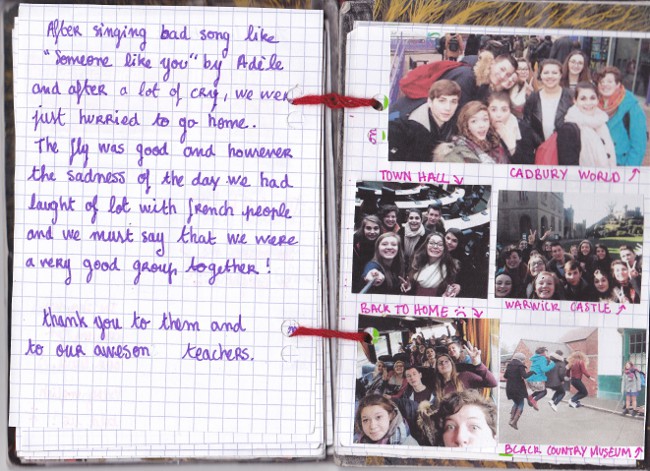 After singing bad song like
"Someone like you" by Adèle
and after a lot of cry, we were
just hurried to go home.
The fly was good and however
the sadness of the day we had
laught of lot with french people
and we must say that we were
a very good group together!
thank you to them and
to our aweson teachers.
TOWN HALL ↘
CADBURY WORLD ↗
BACK TO HOME :( ↘
WARWICK CASTLE ↗
BLACK COUNTRY MUSEUM ↗